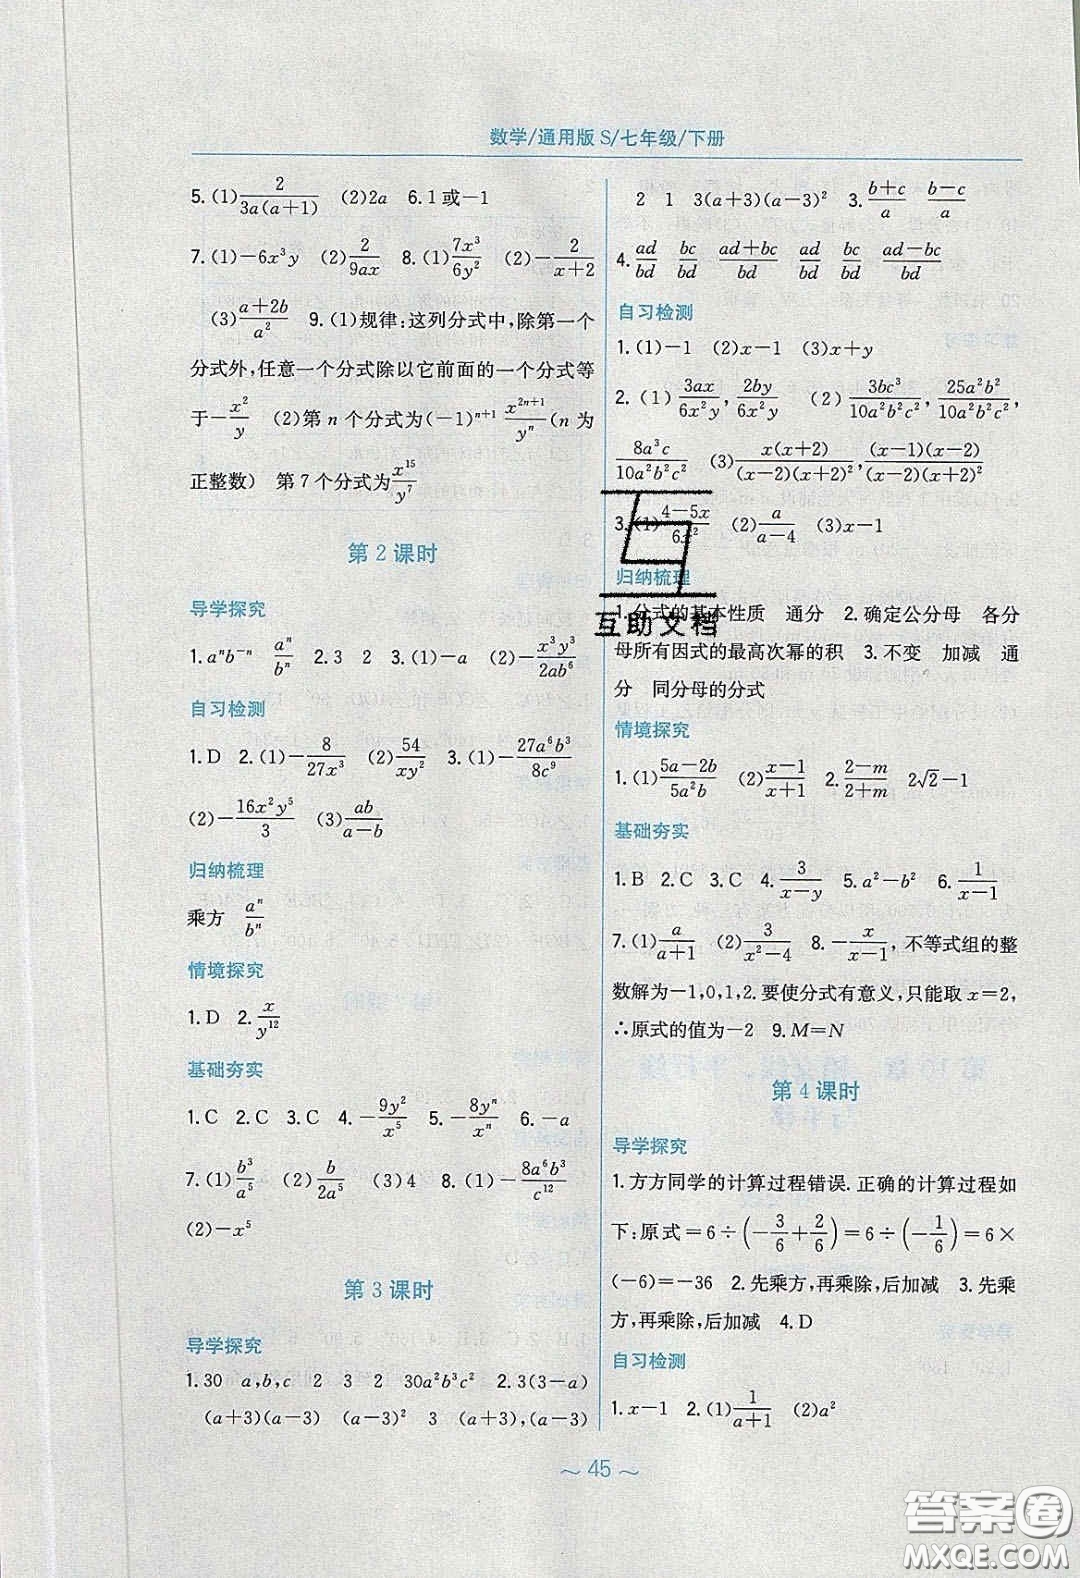 数学/通用版 S/七年级/下册
5. (1) 2/(3a(a+1)) (2)2a 6.1或-1
7. (1)-6x³y (2) 2/(9ax) 8. (1) 7x³/(6y²) (2)- 2/(x+2)
(3) (a+2b)/a² 9. (1)规律:这列分式中,除第一个
分式外,任意一个分式除以它前面的一个分式等
于- x²/y (2)第 n 个分式为(-1)ⁿ⁺¹ x²ⁿ⁺¹/yⁿ (n 为
正整数) 第 7 个分式为 x¹⁵/y⁷
第 2 课时
导学探究
1. aⁿb⁻ⁿ aⁿ/bⁿ 2. 3 2 3. (1)-a (2)- x³y³/(2ab⁶)
自习检测
1. D 2. (1)- 8/(27x³) (2) 54/(xy²) 3. (1)- 27a⁶b³/(8c⁹)
(2)- 16x²y⁵/3 (3) ab/(a-b)
归纳梳理
乘方 aⁿ/bⁿ
情境探究
1. D 2. x/y¹²
基础夯实
1. C 2. C 3. C 4. - 9y²/x⁵ 5. - 8yⁿ/xⁿ 6. -a
7. (1) b³/a⁵ (2) b/(2a⁵) (3)4 8. (1)- 8a⁶b³/c¹²
(2)-x⁵
第 3 课时
导学探究
1. 30 a,b,c 2 3 2 30a²b³c² 2. 3(3-a)
(a+3)(a-3) (a-3)² 3 (a+3),(a-3)
2 1 3(a+3)(a-3)² 3. (b+c)/a (b-c)/a
4. ad/bd bc/bd (ad+bc)/bd ad/bd bc/bd (ad-bc)/bd
自习检测
1. (1)-1 (2)x-1 (3)x+y
2. (1) 3ax/(6x²y), 2by/(6x²y) (2) 3bc³/(10a²b²c²), 25a²b²/(10a²b²c²),
8a³c/(10a²b²c²) (3) x(x+2)/((x-2)(x+2)²), (x-1)(x-2)/((x-2)(x+2)²)
3. (1) (4-5x)/(6x²) (2) a/(a-4) (3)x-1
归纳梳理
1. 分式的基本性质 通分 2. 确定公分母 各分
母所有因式的最高次幂的积 3. 不变 加减 通
分 同分母的分式
互助文档
情境探究
1. (1) (5a-2b)/(5a²b) (2) (x-1)/(x+1) 2. (2-m)/(2+m) 2√2-1
基础夯实
1. B 2. C 3. C 4. 3/(x-y) 5. a²-b² 6. 1/(x-1)
7. (1) a/(a+1) (2) 3/(x²-4) 8. - x/(x-1), 不等式组的整
数解为-1,0,1,2. 要使分式有意义,只能取 x=2,
∴原式的值为-2 9. M=N
第 4 课时
导学探究
1. 方方同学的计算过程错误. 正确的计算过程如
下:原式=6÷(- 3/6 + 2/6)=6÷(- 1/6)=6×
(-6)=-36 2. 先乘方,再乘除,后加减 3. 先乘
方,再乘除,后加减 4. D
自习检测
1. x-1 2. (1) 1/(a+1) (2)a²
~ 45 ~
答案圈
MXQE.COM